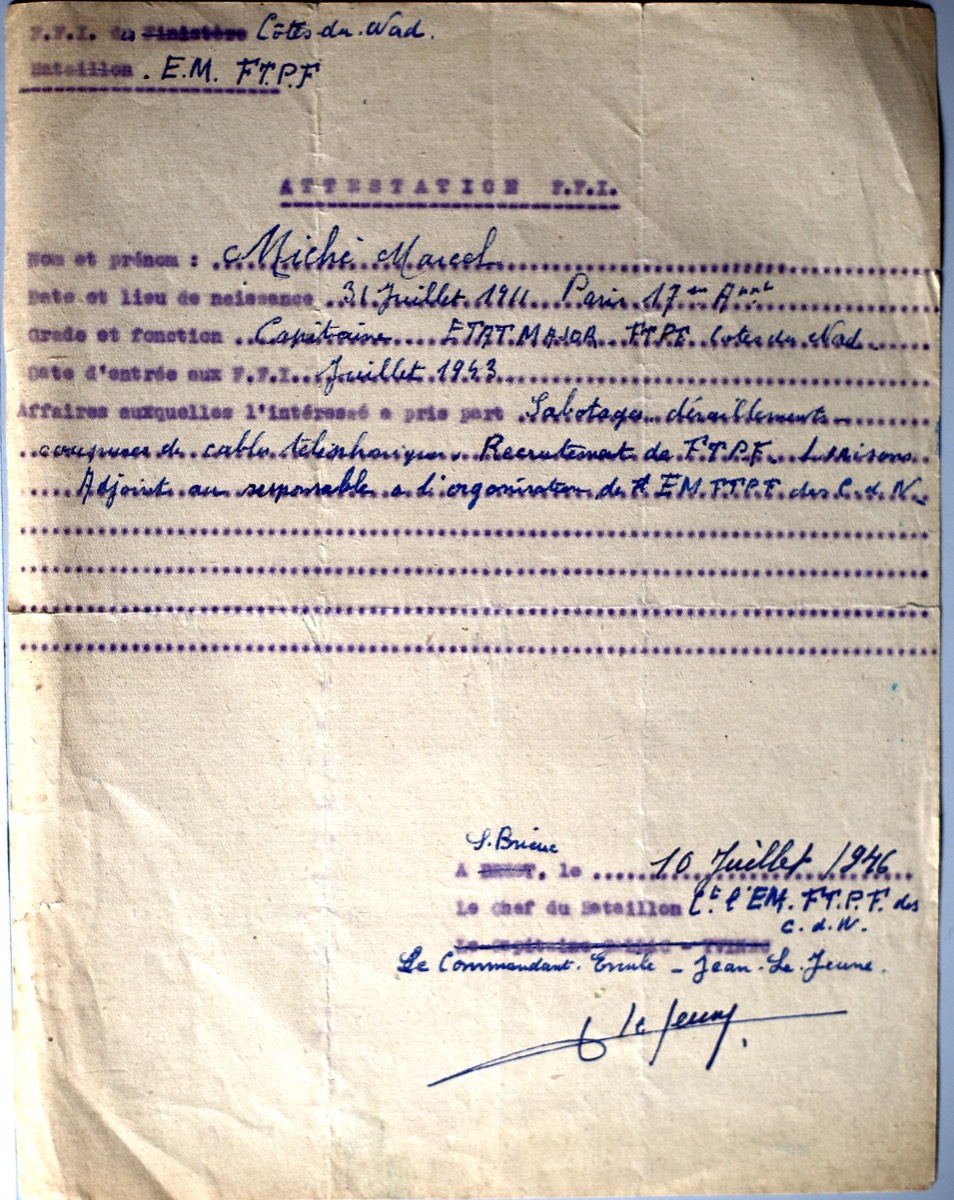 F.F.I. des Finistère Côtes du Nord.
Bataillon. E.M. FTPF
ATTESTATION F.F.I.
Nom et prénom : Miché Marcel
Date et lieu de naissance 31 Juillet 1911 Paris 17em Arrnt
Grade et fonction Capitaine ETAT MAJOR FTPF Cotes du Nord
Date d'entrée aux F.F.I. Juillet 1943
Affaires auxquelles l'intéressé a pris part Sabotages déraillements
coupures de cables téléphoniques. Recrutement de F.T.P.F. Liaisons
Adjoint au responsable a l'organisation de l'EM.FTPF des C.d.N.
S. Brieuc
A BREST, le 10 Juillet 1946
Le Chef du Bataillon Ct l'EM. F.T.P.F. des
C.d.N.
Le Capitaine
Le Commandant Emile - Jean Le Jeune.
le Jeune